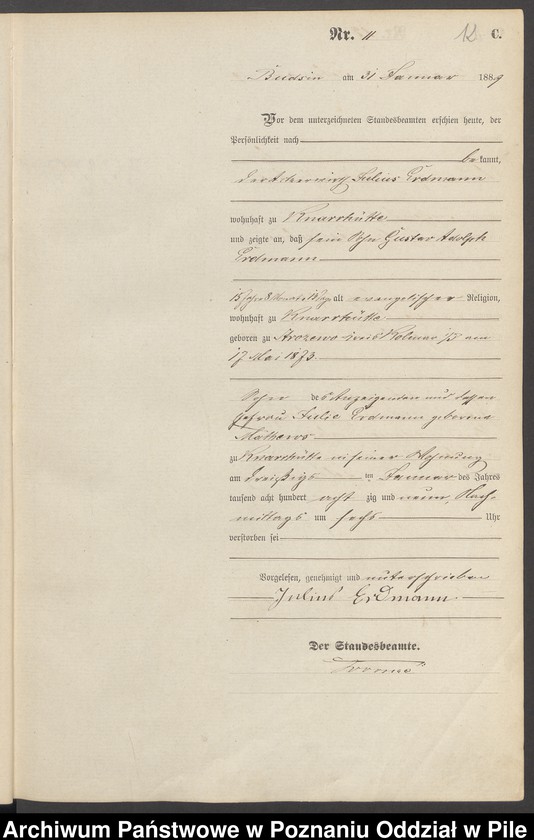 Nr. 11 12 C.
Budsin am 31 Januar 1889
Vor dem unterzeichneten Standesbeamten erschien heute, der
Persönlichkeit nach
bekannt,
der Ackerwirth Julius Erdmann
wohnhaft zu Knarrhütte
und zeigte an, daß sein Sohn Gustav Adolph
Erdmann
15 Jahr 8 Monat 13 Tage alt evangelischer Religion,
wohnhaft zu Knarrhütte
geboren zu Strozewo Kreis Kolmar i/P am
17 Mai 1873
Sohn des Anzeigenden und dessen
Ehefrau Julie Erdmann geborene
zu Knarrhütte in seiner Wohnung
am dreißigs ten Januar des Jahres
tausend acht hundert acht zig und neun, Nach-
mittags um sechs Uhr
verstorben sei
Vorgelesen, genehmigt und unterschrieben
Julius Erdmann
Der Standesbeamte.
Archiwum Państwowe w Poznaniu Oddział w Pile